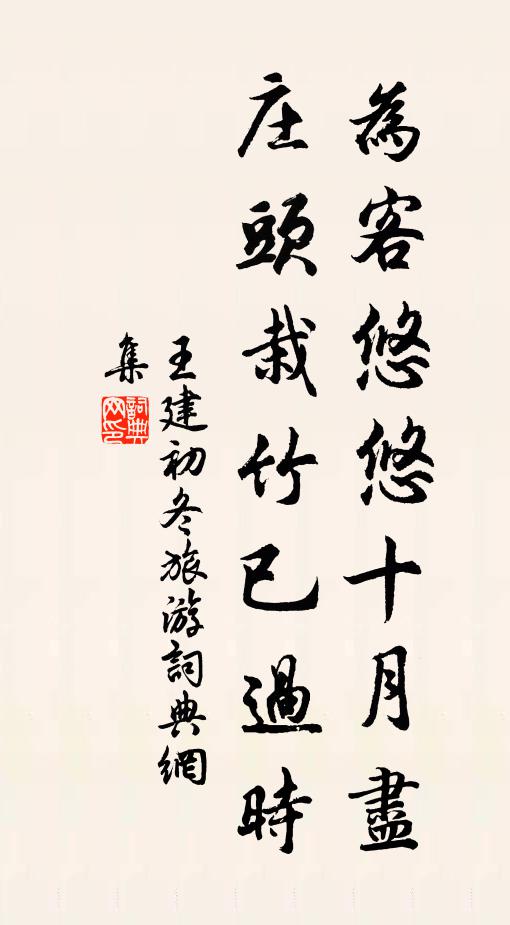 為客悠悠十月盡
庄頭栽竹已過時
王建初冬旅游詞典網
集
詞典网印